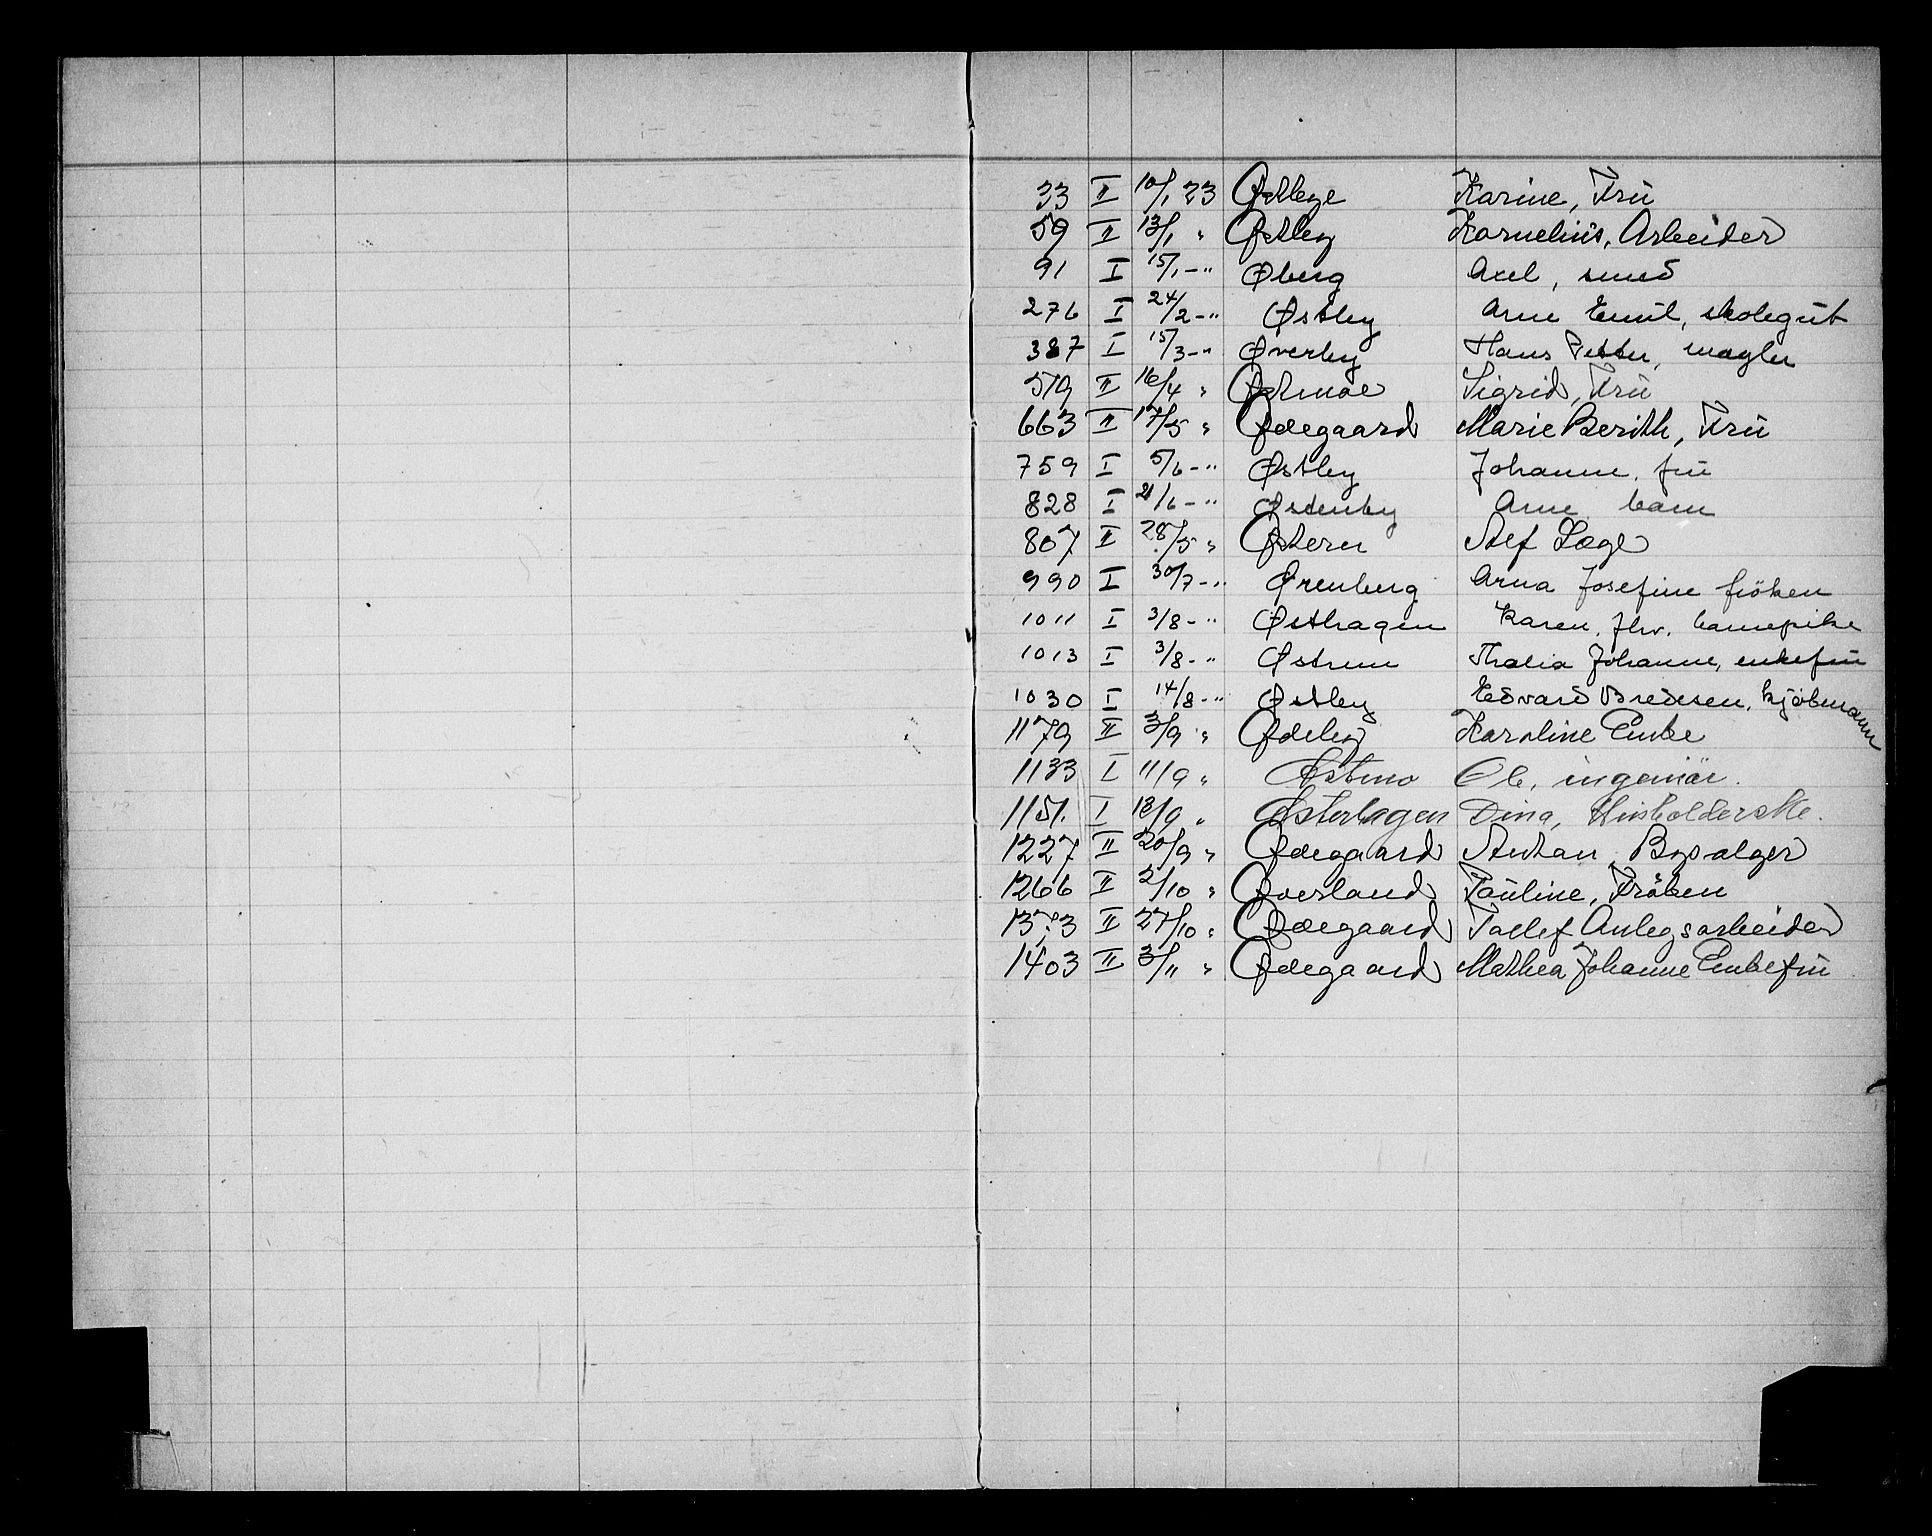 33 II 10/1 23 Østbye Karine, Frü
59 II 13/1 " Østby Kornelius, Arbeider
91 I 15/1 - " Øberg Axel, smed
276 I 24/2 - " Østby Arne Emil, skolegüt
387 I 15/3 - " Øverby Hans Petter, mægler
519 II 16/4 " Østmoe Sigrid, Frü
663 II 17/5 " Ødegaard Marie Berith, Frü
759 I 5/6 - " Østby Johanne, frü
828 I 21/6 - " Østenby Arne barn
807 II 28/5 " Østern Læge
990 I 30/7 - " Ørenberg Arna Josefine fröken
1011 I 3/8 - " Østhagen Karen, fhv. barnepike
1013 I 3/8 - " Østrem Thalia Johanne, enkefrü
1030 I 14/8 - " Østby Edvard Bredesen, kjöbmann
1179 II 3/9 " Ødeby Karoline Enke
1133 I 11/9 " Østmo Ole, ingeniör.
1151. I 13/9 " Østerhagen Dina, Hüsholderske.
1227 II 20/9 " Ødegaard Anton Bysælger
1266 II 2/10 " Øverland Pauline, Fröken
1373 II 27/10 " Ødegaard Anlegsarbeider
1403 II 3/11 " Ødegaard Mathea Johanne Enkefrü